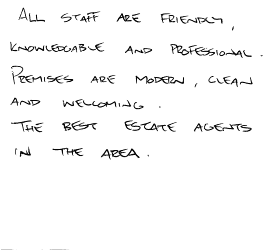 ALL STAFF ARE FRIENDLY,
KNOWLEDGABLE AND PROFESSIONAL.
PREMISES ARE MODERN, CLEAN
AND WELCOMING.
THE BEST ESTATE AGENTS
IN THE AREA.